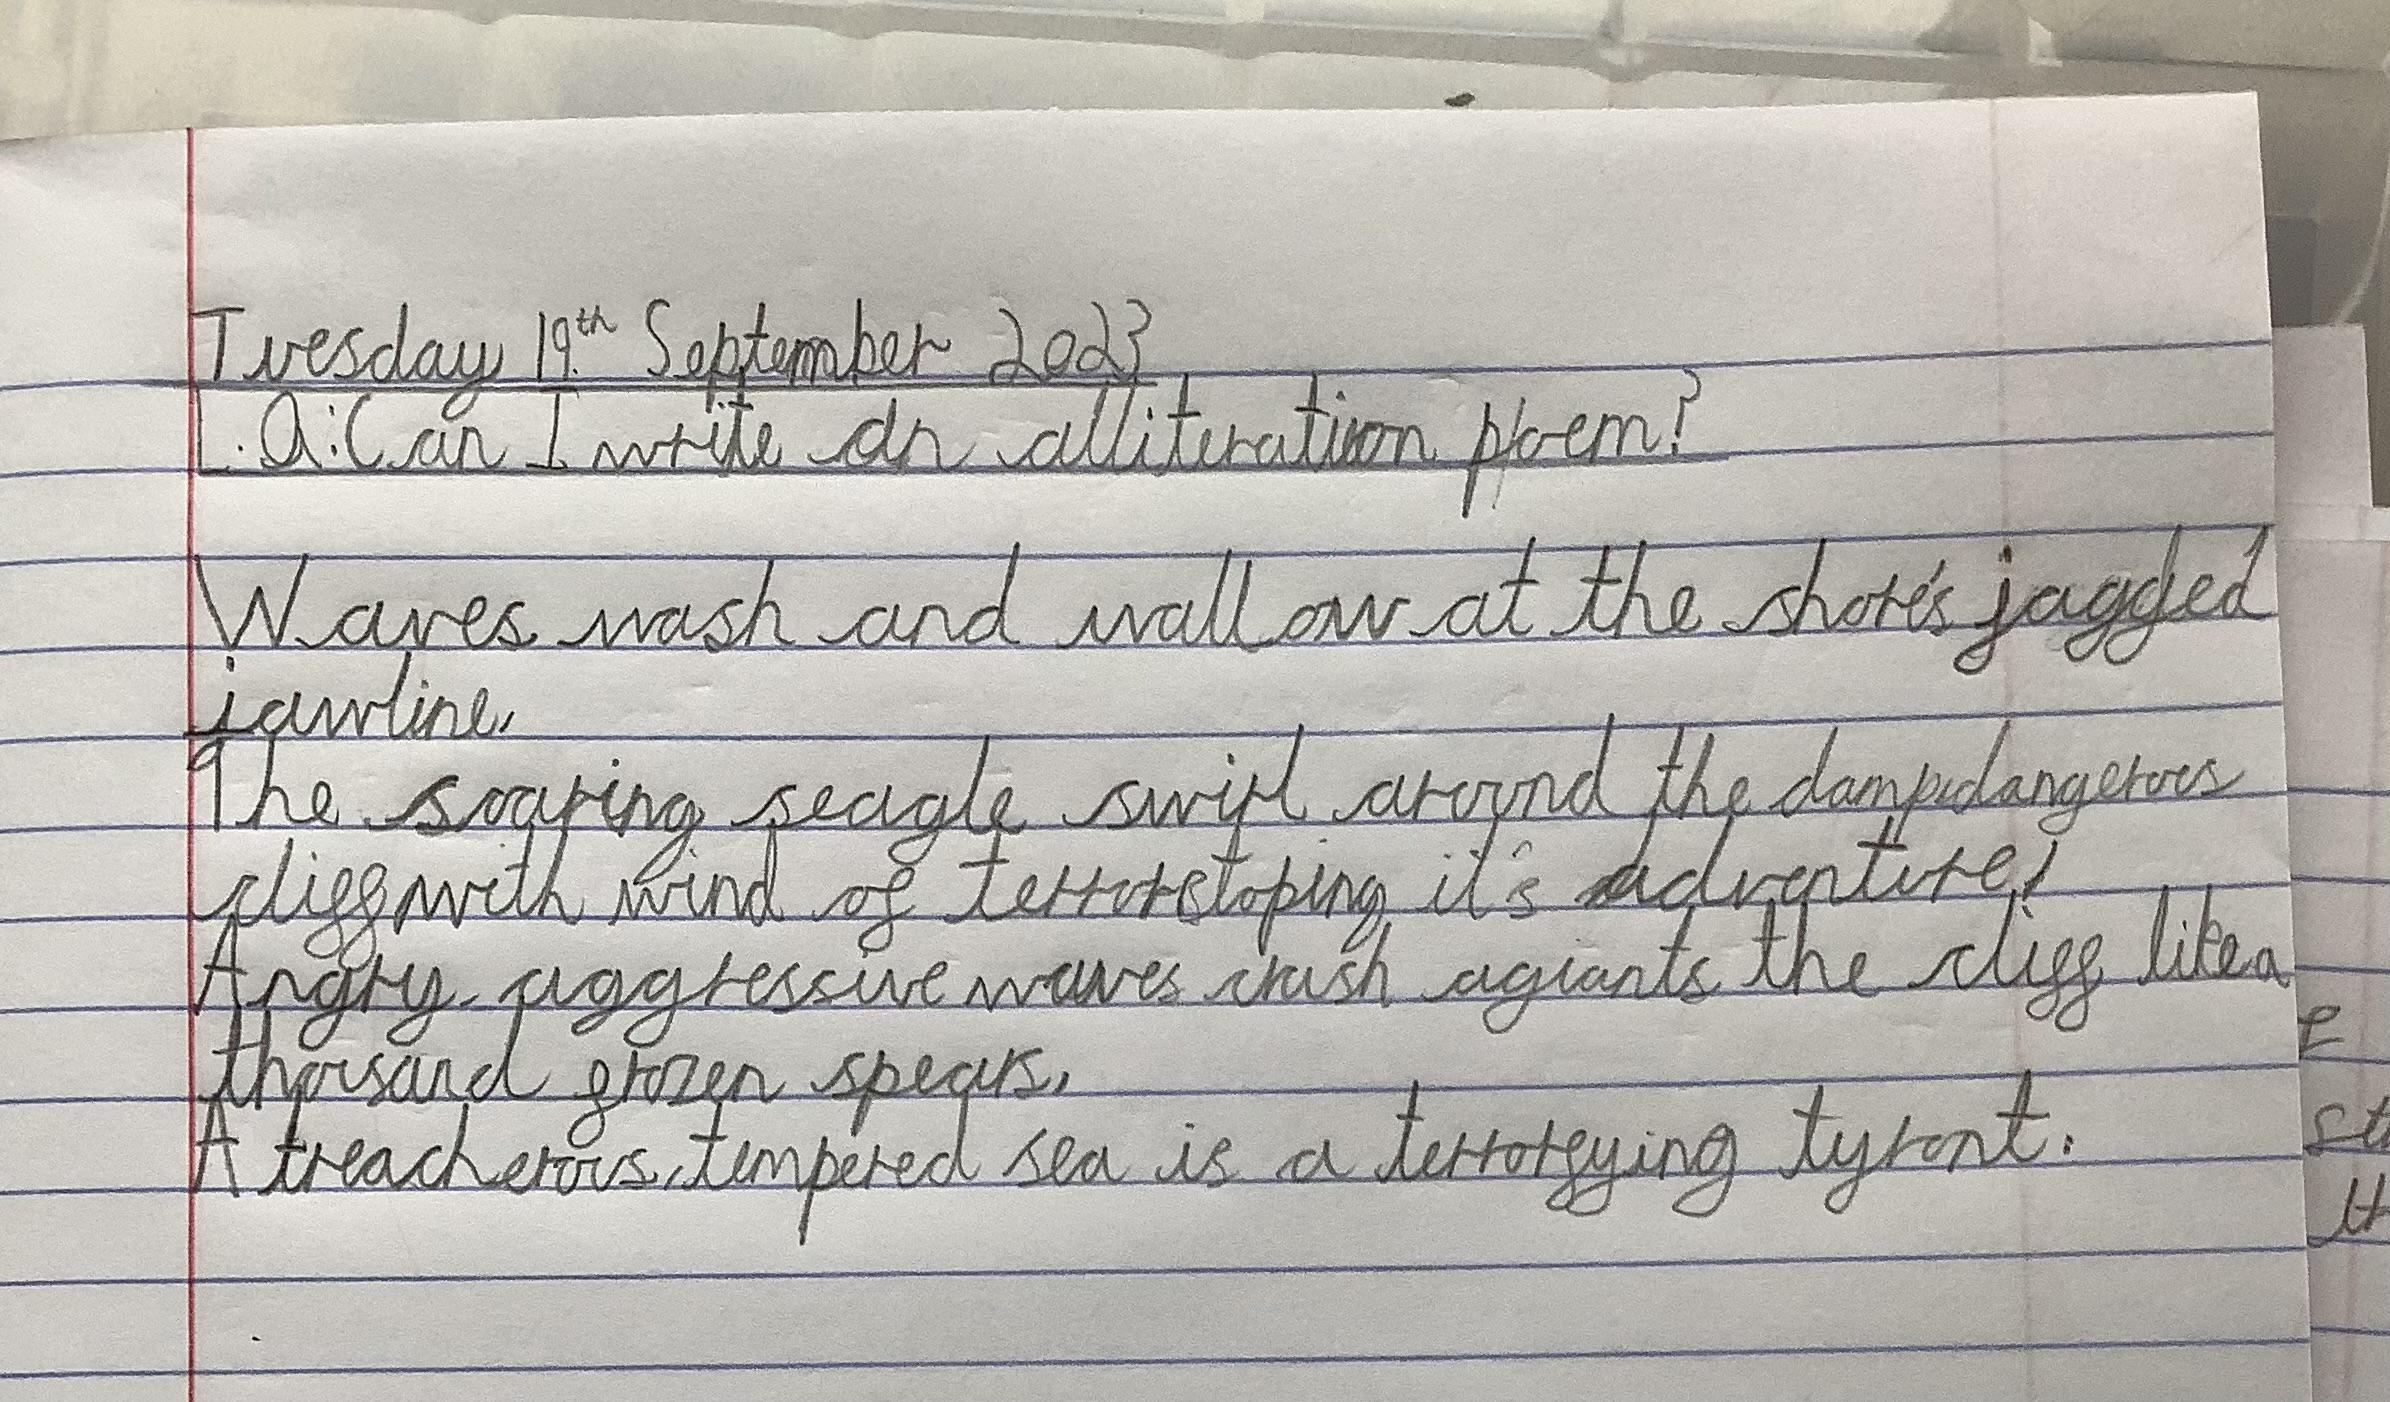 Tuesday 19th September 2023
L.Q: Can I write an alliteration poem?
Waves wash and wallow at the shore's jagged
jawline,
The soaring seagle swirl around the damp,dangerous
cliff with wind of terror stoping it's adventure!
Angry, aggressive waves crash agiants the cliff like a
thousand frozen spears,
A treacherous, tempered sea is a terrorfying tyront.